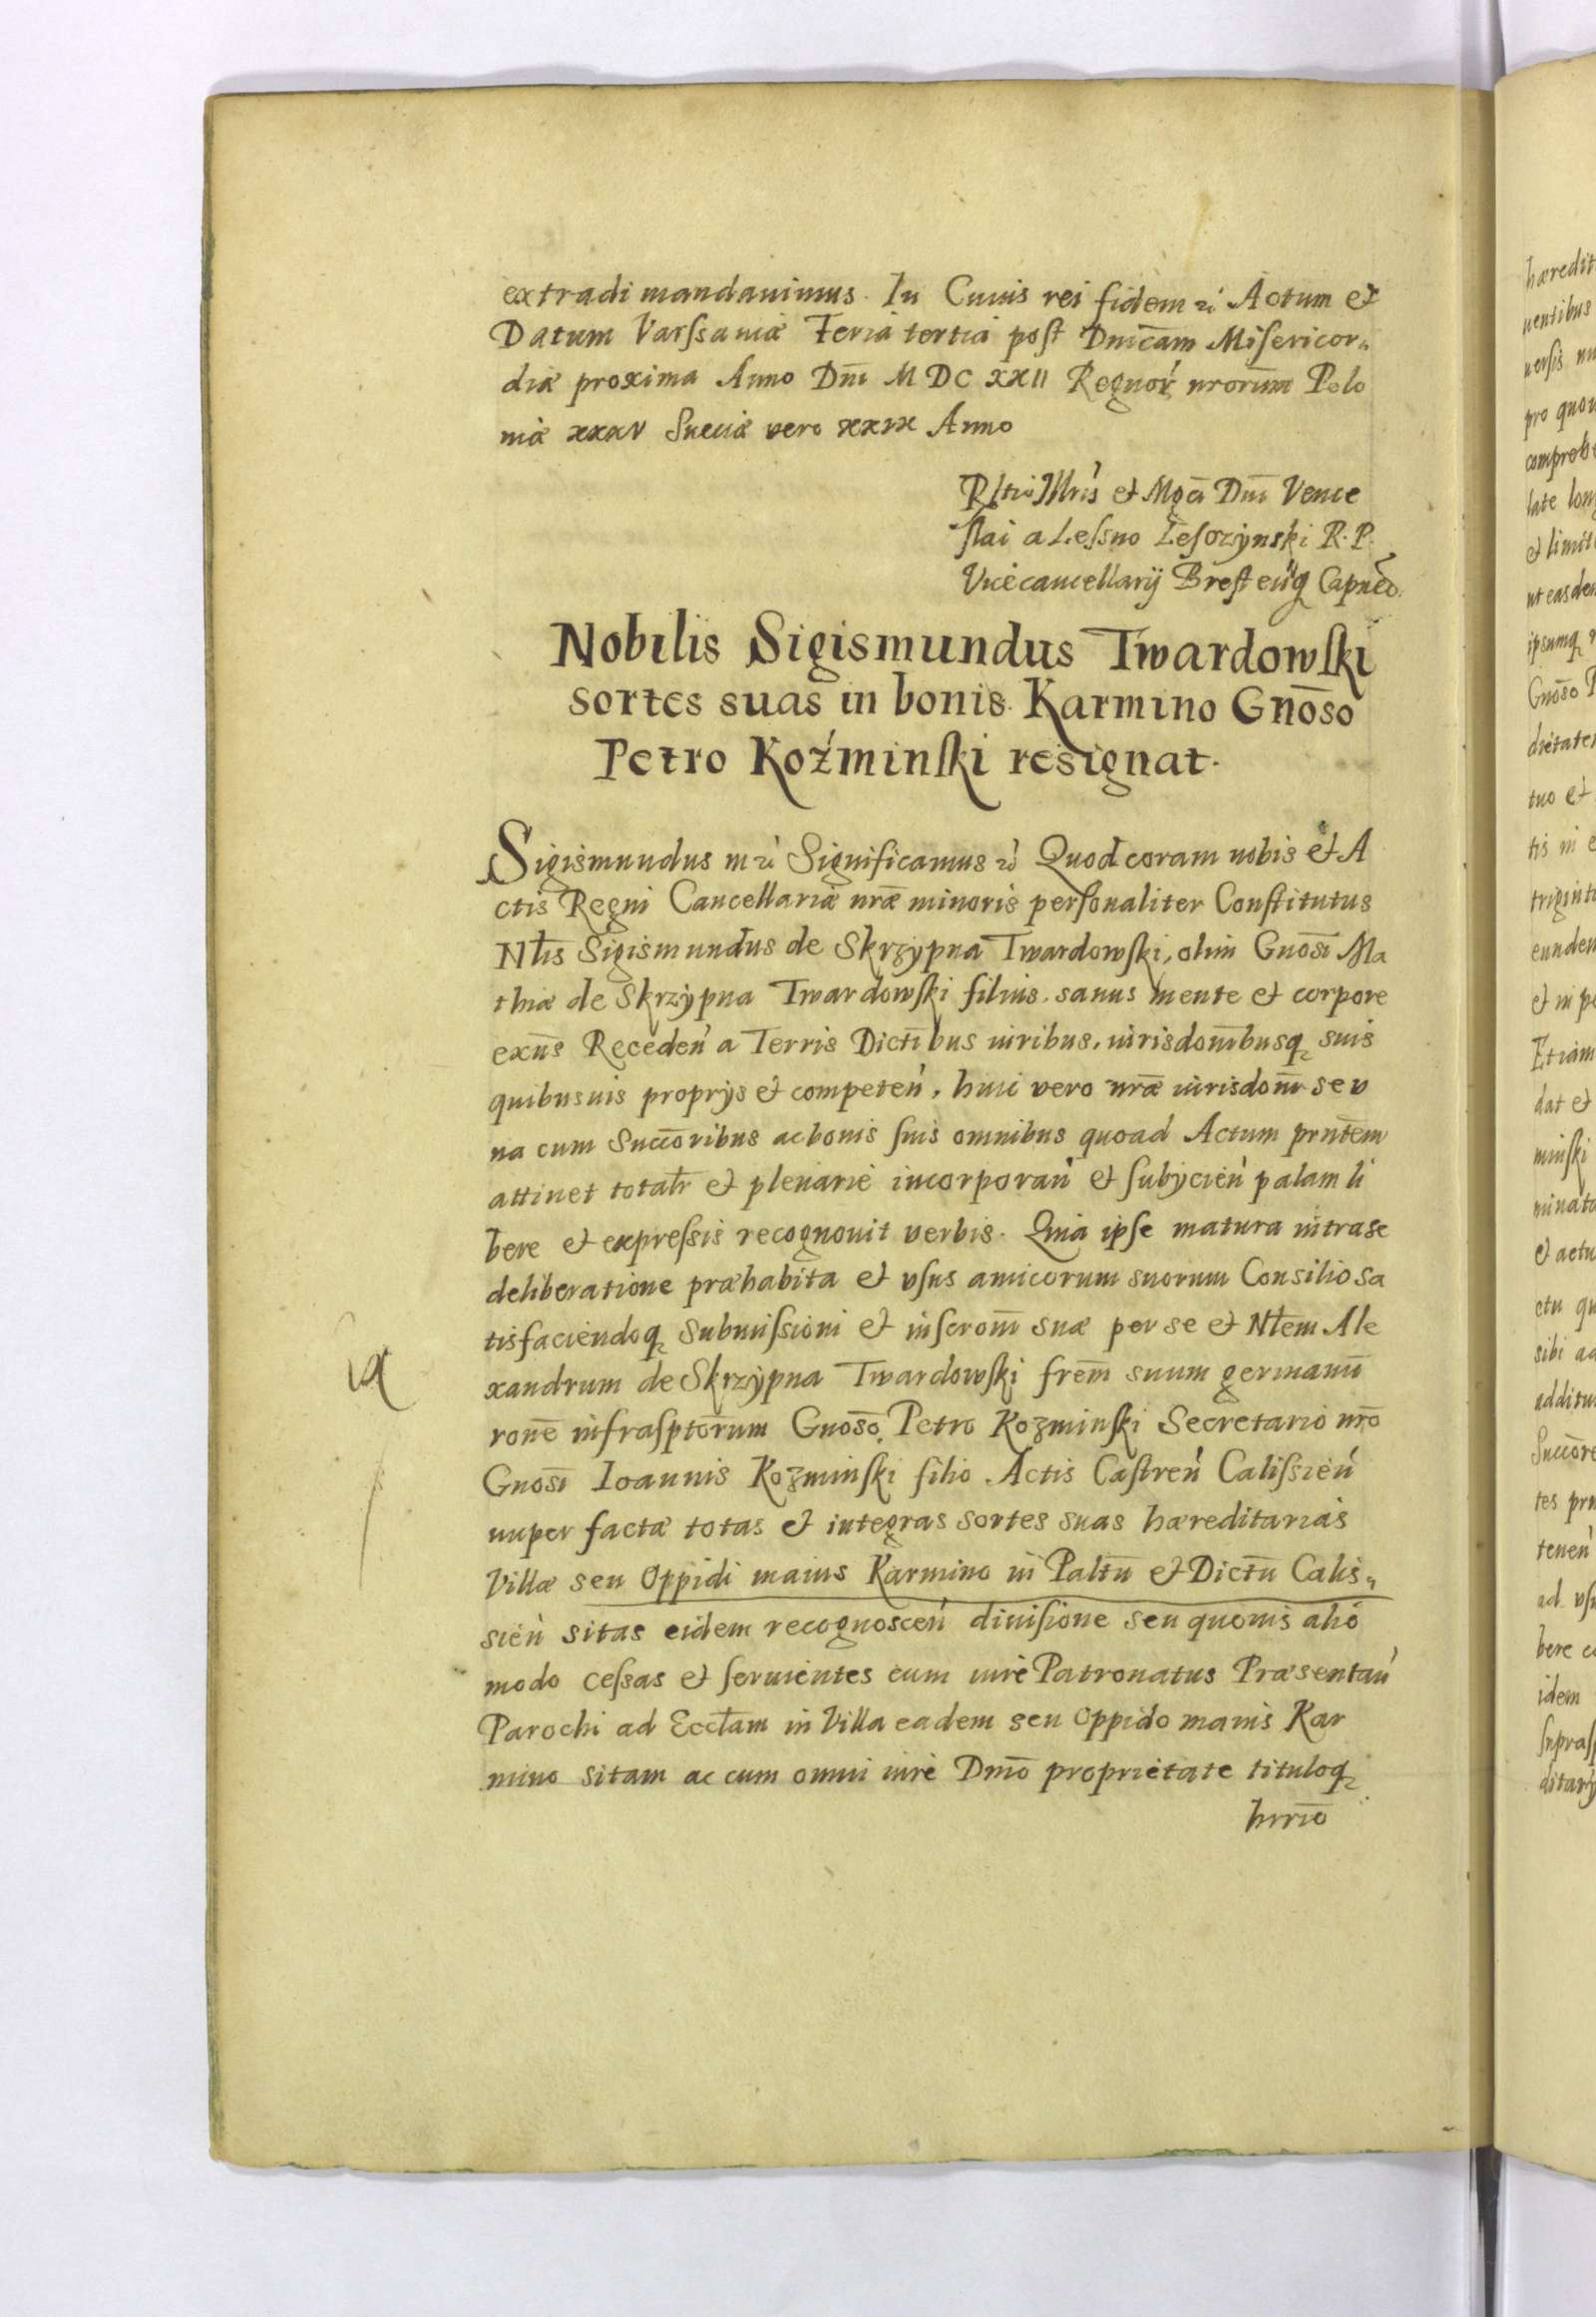 extradi mandauimus. In Cuius rei fidem Actum et
Datum Varssauiæ Feria tertia post Dnicam Misericor„
diæ proxima Anno Dni MDCXXII Regnor nrorum Polo
niæ xxxv Sueciæ vero xxix Anno
Rltio Illris et Mgci Dni Vence
slai a Lessno Lesczynski R. P.
Vicecancellarij Bresteuq Capneo.
Nobilis Sigismundus Twardowski
sortes suas in bonis Karmino Gnoso
Petro Koźminski resignat.
Sigismundus m Significamus Quod coram nobis et A
ctis Regni Cancellariæ nræ minoris personaliter Constitutus
Nlis Sigismundus de Skrzypna Twardowski, olim Gnosi Ma
thiæ de Skrzypna Twardowski filius. sanus mente et corpore
exns Receden a Terris Dictibus iuribus, iurisdonibusq suis
quibusuis proprys et competen, huic vero nræ iurisdoni se v
na cum Succoribus ac bonis suis omnibus quoad Actum prntem
attinet totalr et plenarie incorporan et subycien palam li
bere et expressis recognouit verbis. Quia ipse matura intra se
deliberatione præhabita et vsus amicorum suorum Consilio sa
tisfaciendoq Submissioni et inscroni suæ per se et Nlem Ale
xandrum de Skrzypna Twardowski frem suum germanu
rone infrasptorum Gnoso Petro Kozminski Secretario nro
Gnosi Ioannis Kozminski filio Actis Castren Calissien
nuper factæ totas et integras sortes suas hæreditarias
Villæ seu Oppidi maius Karmino in Paltu et Dictu Calis„
sien sitas eidem recognoscen diuisione seu quouis alio
modo cessas et seruientes cum iure Patronatus Præsentan
Parochi ad Ecclam in Villa eadem seu Oppido maius Kar
mino sitam ac cum omni iure Dmo proprietate tituloq
hrrio